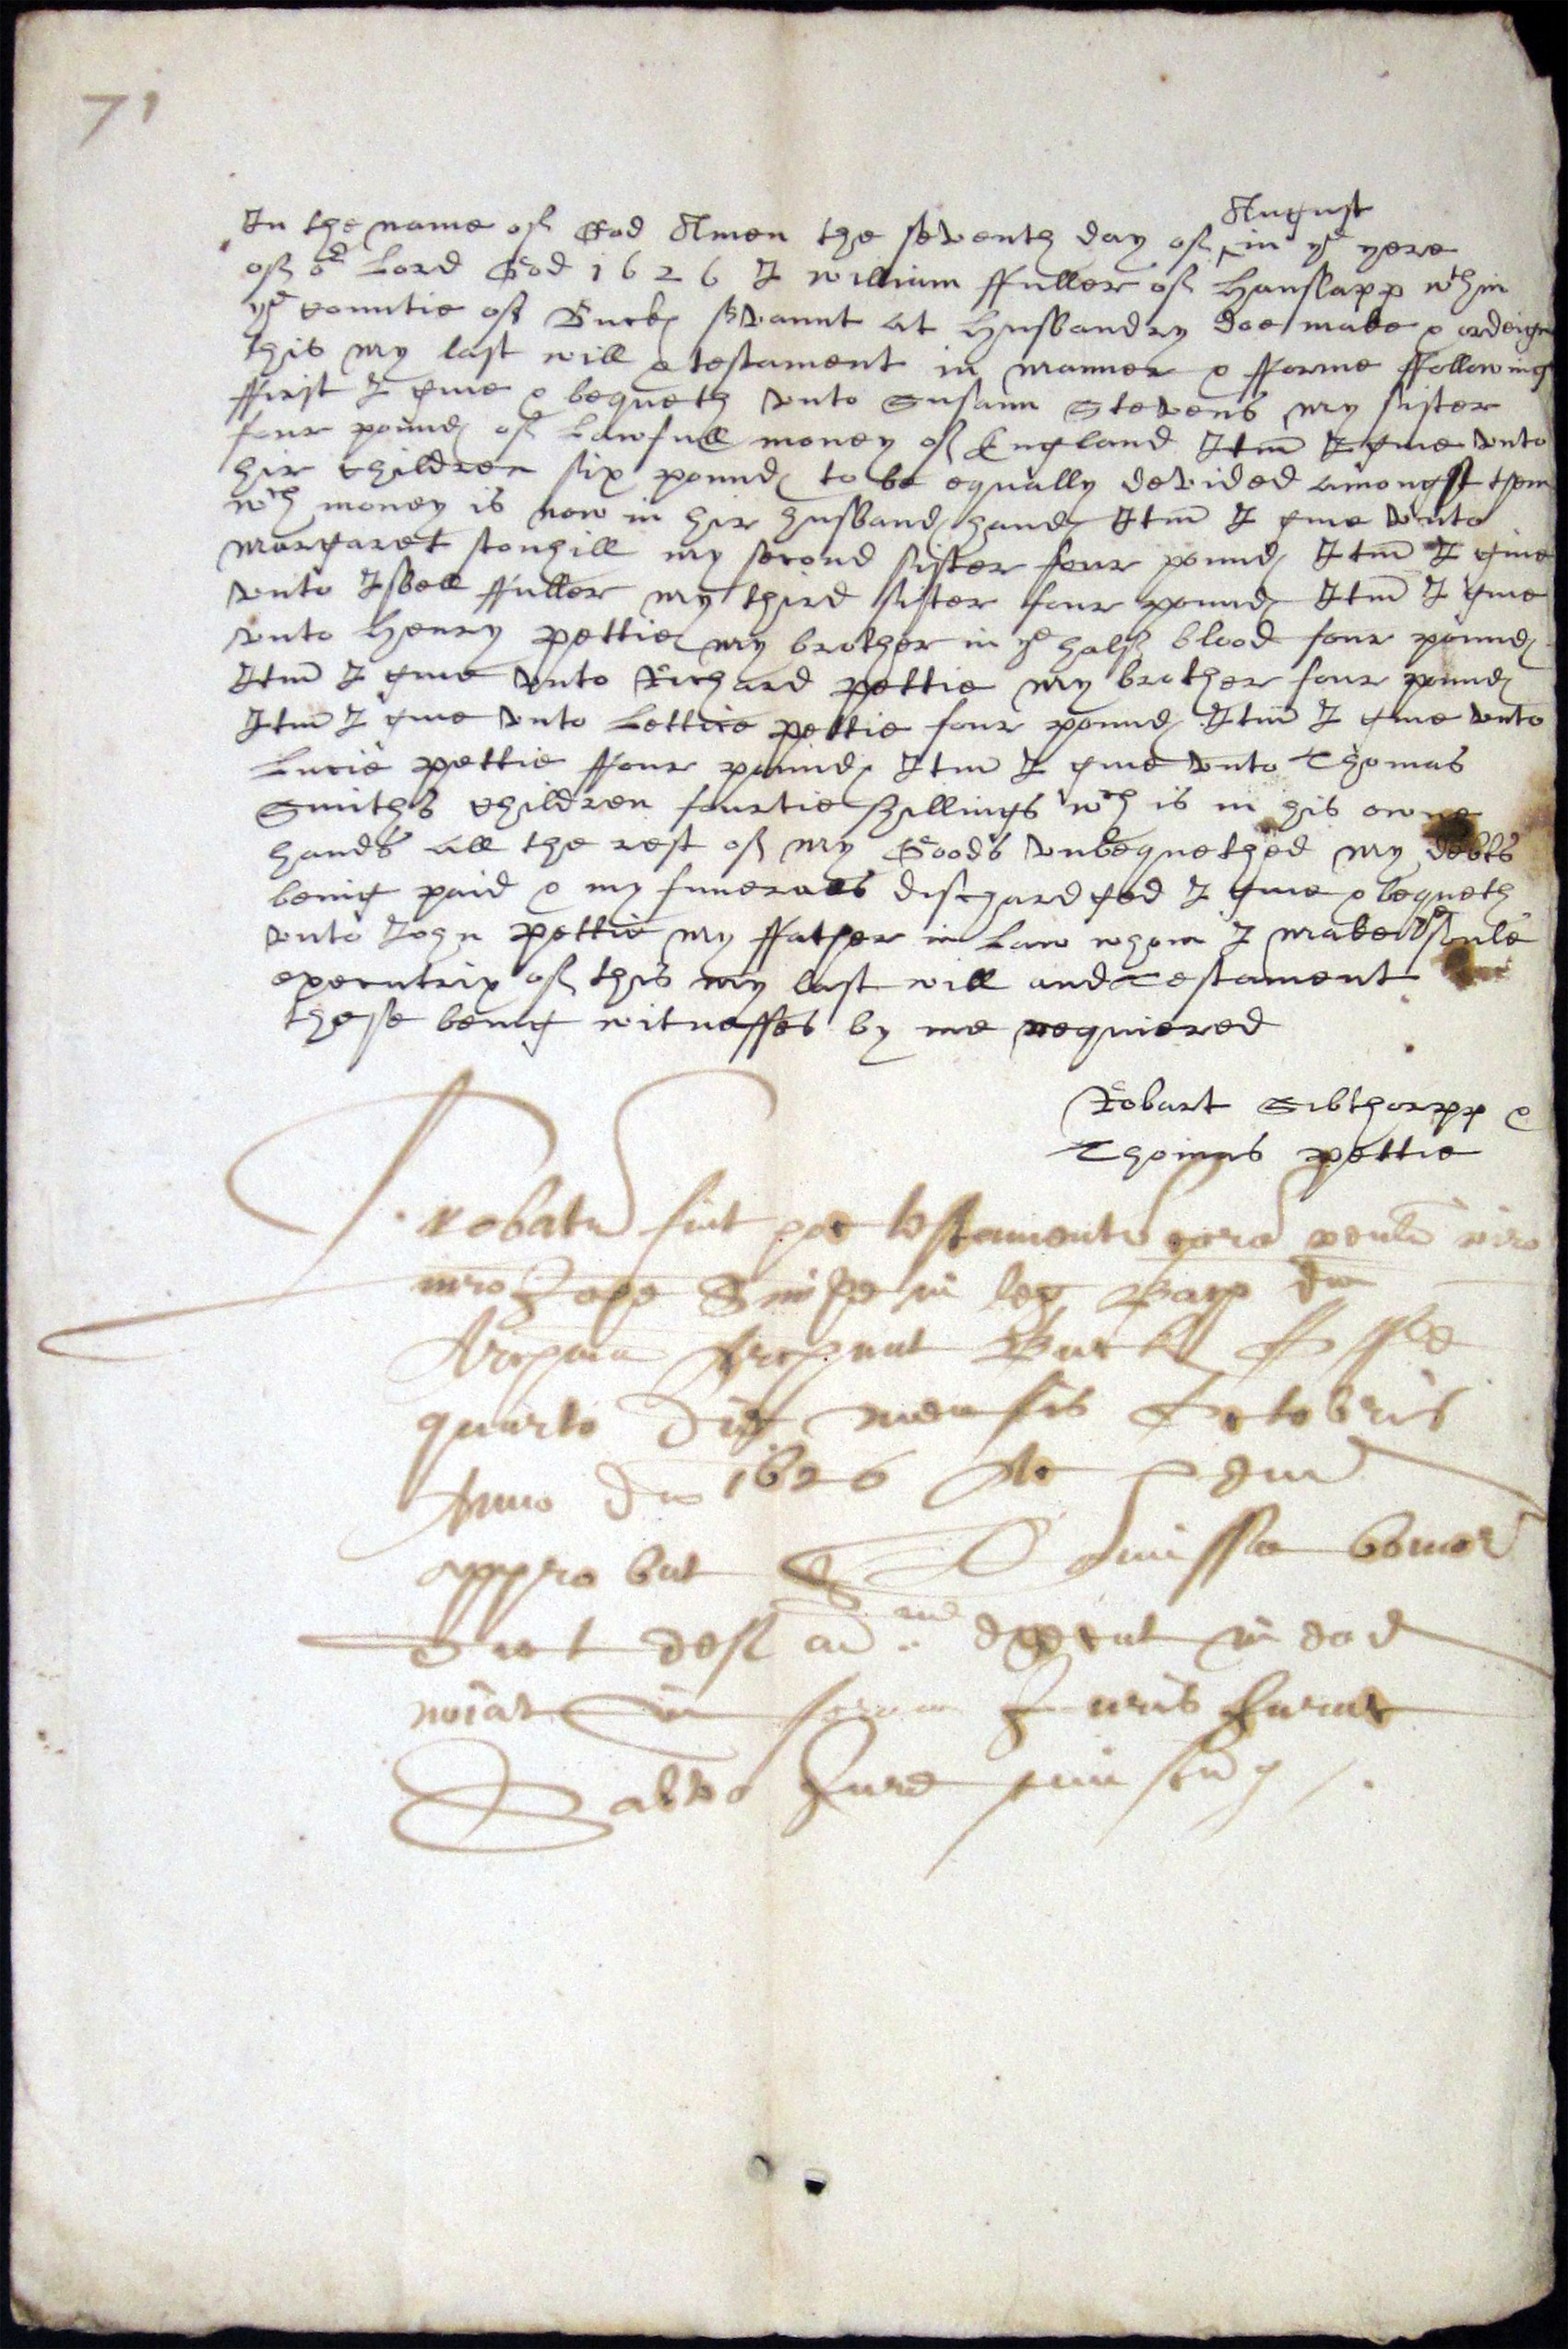 71
August
In the name of God Amen the seventh day of ^ in ye yere
of or Lord God 1626 I William ffuller of Hanslapp wthin
ye countie of Bucks servannt at Husbandry doe make & ordeigne
this my last will & testament in manner & fforme ffollowing
ffirst I give & bequeth unto Susann Stevens my sister
four pounds of Lawfull money of England Itm I give unto
hir Children six pounds to be equally devided amongst them
wch money is now in hir husbands hands Itm I give unto
Margaret stonhill my second sister four pounds Itm I give
unto Isbell ffuller my third sister four pounds Itm I give
unto Henry pettie my brother in ye half blood four pounds
Itm I give unto Richard pettie my brother four pounds
Itm I give unto Lettice pettie four pounds Itm I give unto
Lucie pettie ffour pounds Itm I give unto Thomas
Smiths Children fourtie shillings wch is in his owne
hands All the rest of my Goods unbequethed my debts
being paid & my funeralls dischardged I give & bequeth
unto John pettie my ffather in Law whom I make ye soule
executrix of this my last will and Testament
these being witnesses by me requiered
Robart Sibthorpp &
Thomas pettie
Probatu fuit testamentu cora venli viro
mro in leg Bacc
Archinat Buck
quarto die mensis Octobris
Anno dni 1626 Ac
approbat Et Comissa bonor
Dict def execut in eod
noiat in forma Juris Jurat
Salvo Jure